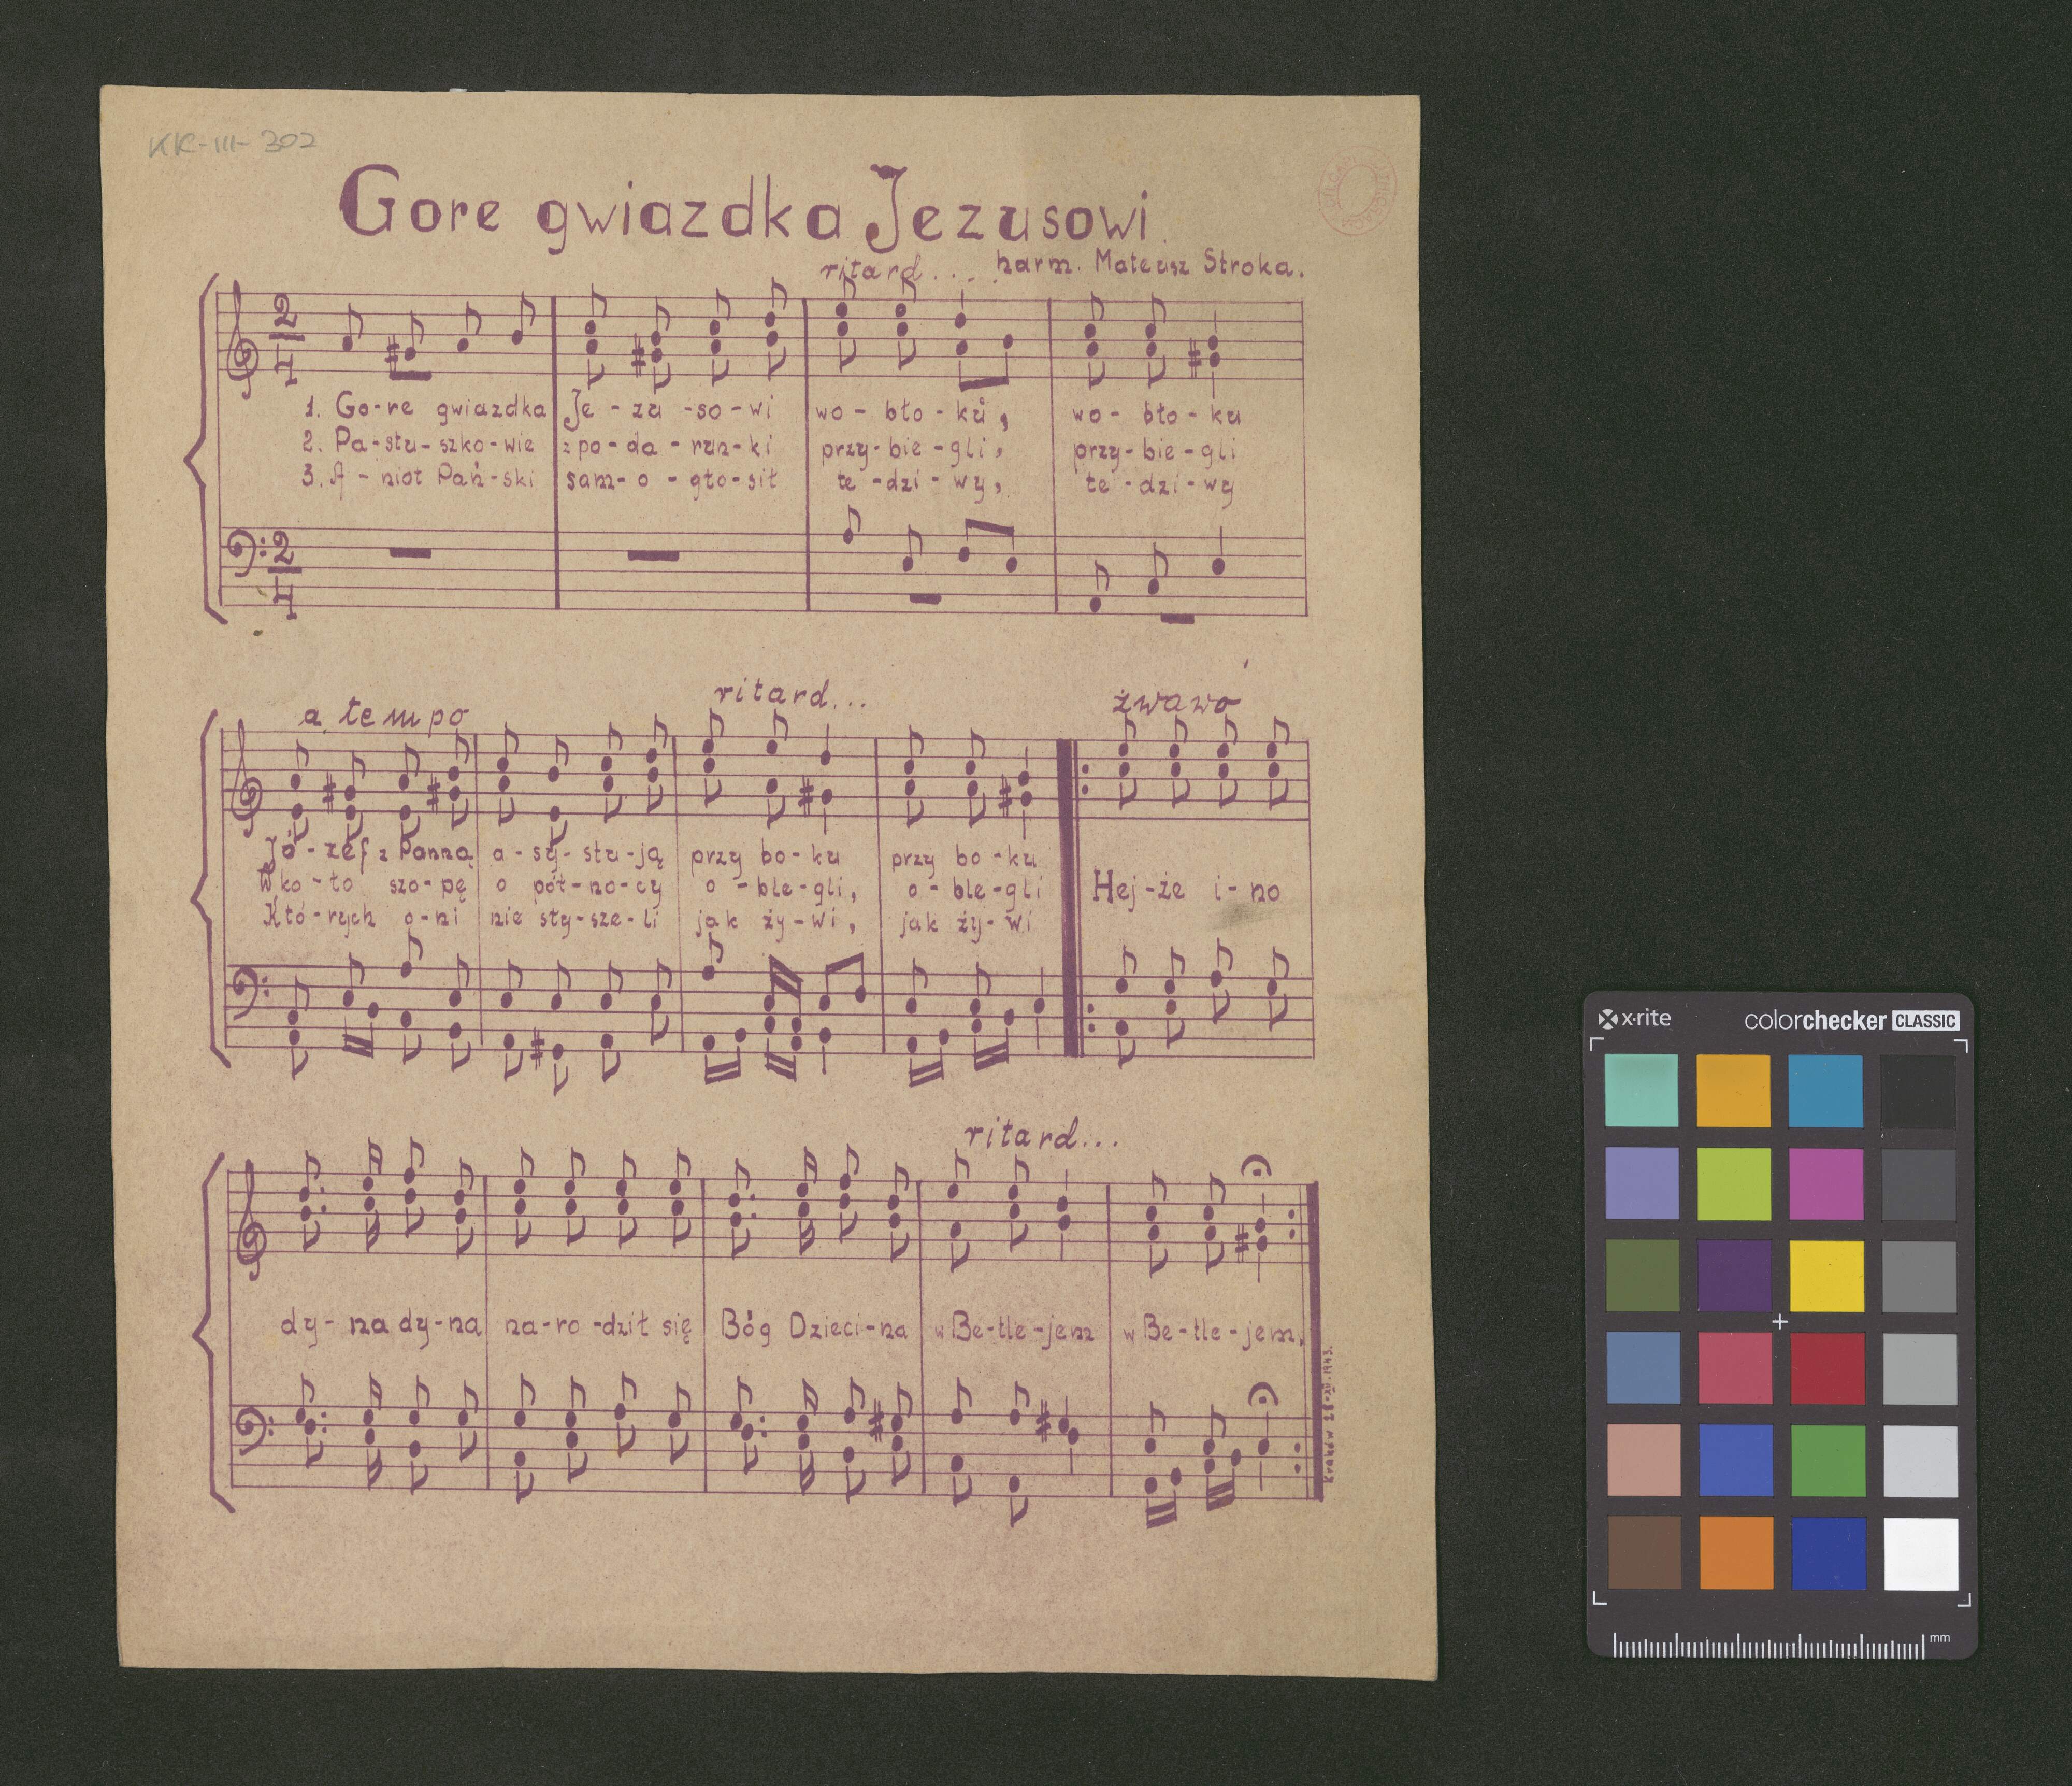 KK-III-302
Gore gwiazdka Jezusowi.
ritard... harm. Mateusz Stroka.
2/4
1. Go-re gwiazdka Je-zu-so-wi wo-bło-ku, wo-bło-ku
2. Pa-stu-szko-wie z po-da-run-ki przy-bie-gli, przy-bie-gli
3. A-nioł Pań-ski sam-o-gło-sił te-dzi-wy, te-dzi-wy
2/4
a tempo ritard... żwawo
Jó-zef z Panną a-sy-stu-ją przy bo-ku przy bo-ku
W ko-ło szo-pę o pół-no-cy o-ble-gli, o-ble-gli Hej-że i-no
Któ-rych o-ni nie sły-sze-li jak ży-wi, jak ży-wi
ritard...
dy-na dy-na na-ro-dził się Bóg Dzieci-na w Be-tle-jem w Be-tle-jem,
Kraków 28-XII-1943.
x-rite colorchecker CLASSIC
mm